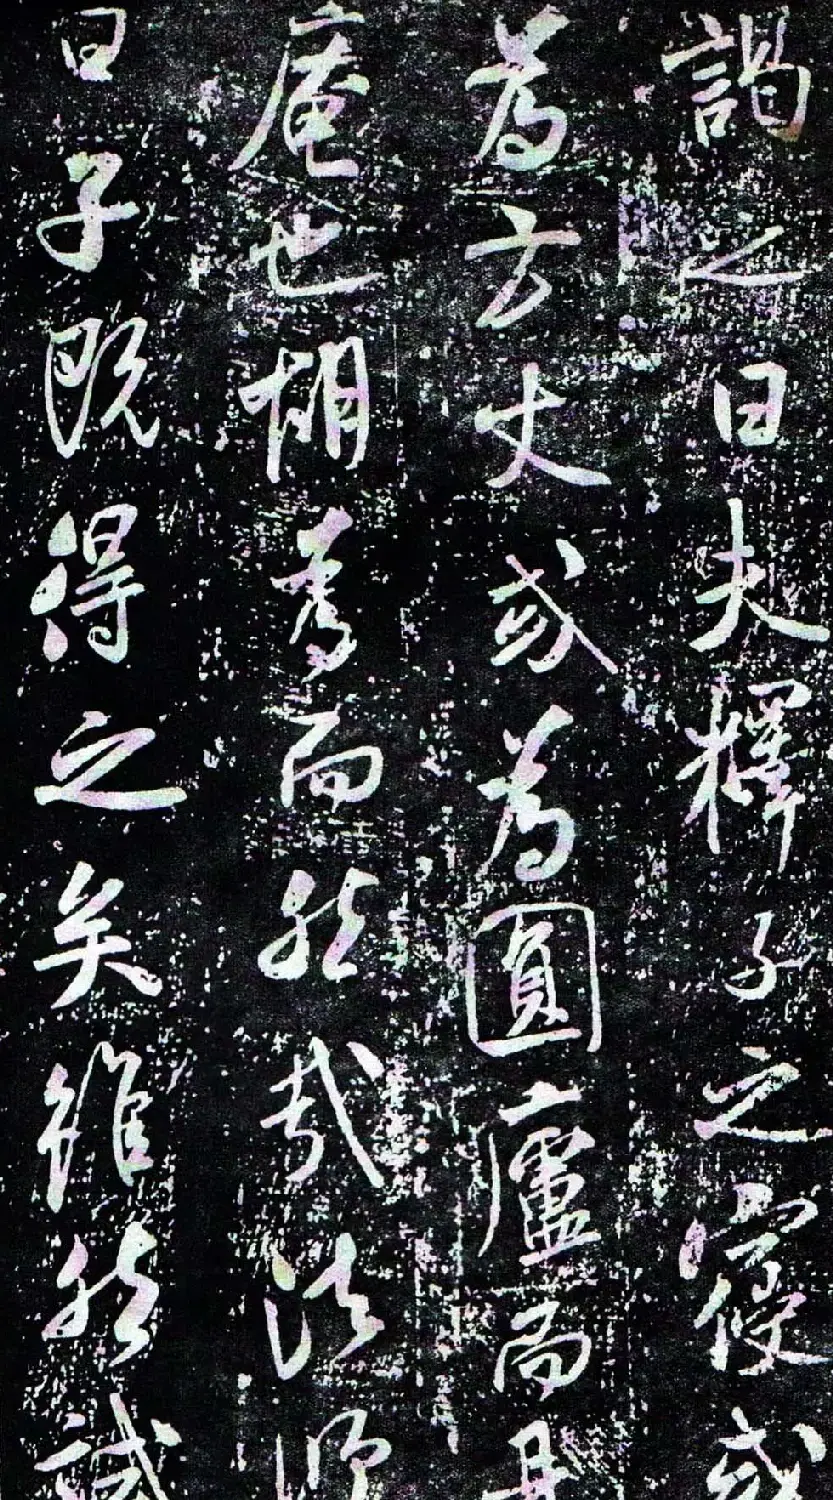 謁之曰夫釋子之寢或
為方丈或為圓廬而是
庵也胡為而然哉法師
曰子既得之矣雖然試